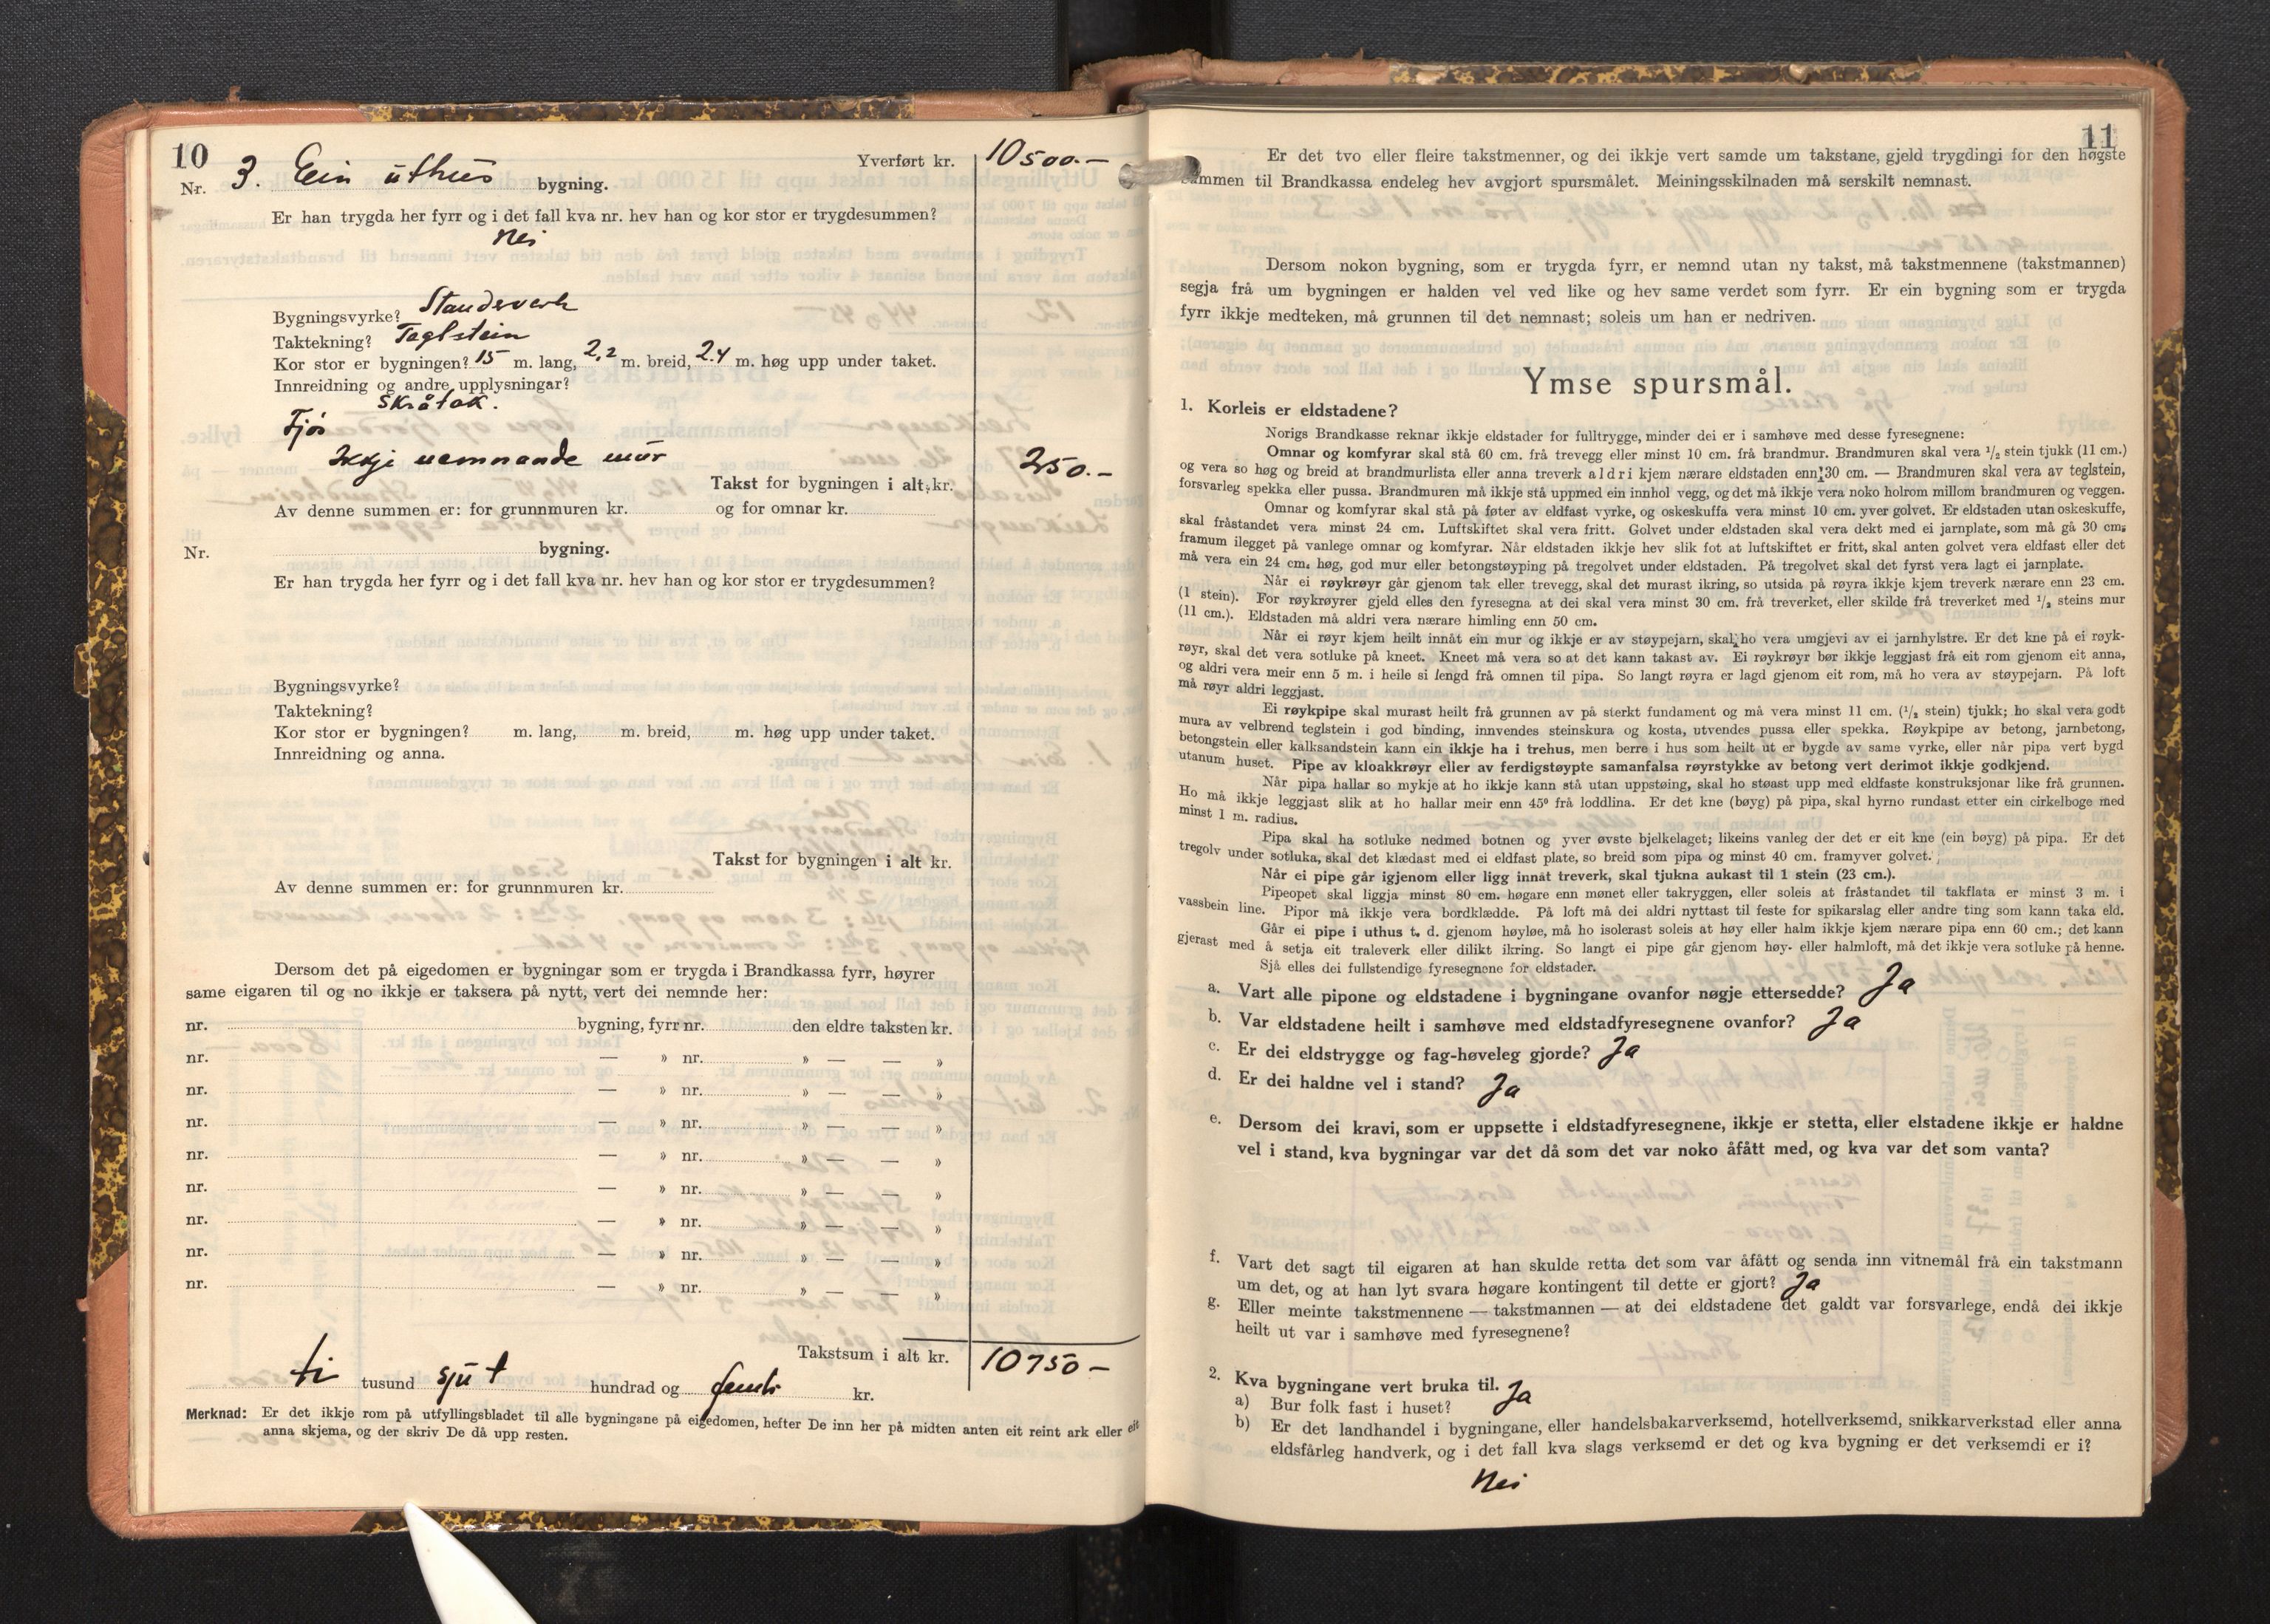 10
Yverført kr. 10500.-
Nr. 3. Ein uthus bygning.
Er han trygda her fyrr og i det fall kva nr. hev han og kor stor er trygdesummen?
Nei
Bygningsvyrke? Standverk
Taktekning? Teglstein
Kor stor er bygningen? 15 m. lang, 2,2 m. breid, 2.4 m. høg upp under taket.
Innreidning og andre upplysningar?
Skråtak.
Fjøs
Ikkje nemnande mur
250.-
Takst for bygningen i alt kr.
Av denne summen er: for grunnmuren kr. og for omnar kr.
Nr. bygning.
Er han trygda her fyrr og i det fall kva nr. hev han og kor stor er trygdesummen?
Bygningsvyrke?
Taktekning?
Kor stor er bygningen? m. lang, m. breid, m. høg upp under taket.
Innreidning og anna.
Takst for bygningen i alt kr.
Av denne summen er: for grunnmuren kr.
Dersom det på eigedomen er bygningar som er trygda i Brandkassa fyrr, høyrer
same eigaren til og no ikkje er taksera på nytt, vert dei nemnde her:
nr. bygning, fyrr nr. den eldre taksten kr.
nr. — » nr. » — — »
nr. — » nr. » — — »
nr. — » nr. » — — »
nr. — » nr. » — — »
nr. — » nr. » — — »
nr. — » nr. » — — »
nr. — » nr. » — — »
nr. — » nr. » — — »
Takstsum i alt kr. 10750-
ti tusund sju hundrad og femti kr.
Merknad: Er det ikkje rom på utfyllingsbladet til alle bygningane på eigedomen, hefter De inn her på midten anten eit reint ark eller eit
anna skjema, og der skriv De då upp resten.
11
Er det tvo eller fleire takstmenner, og dei ikkje vert samde um takstane, gjeld trygdingi for den høgste
summen til Brandkassa endeleg hev avgjort spursmålet. Meiningsskilnaden må serskilt nemnast.
Dersom nokon bygning, som er trygda fyrr, er nemnd utan ny takst, må takstmennene (takstmannen)
segja frå um bygningen er halden vel ved like og hev same verdet som fyrr. Er ein bygning som er trygda
fyrr ikkje medteken, må grunnen til det nemnast; soleis um han er nedriven.
Ymse spursmål.
1. Korleis er eldstadene?
Norigs Brandkasse reknar ikkje eldstader for fulltrygge, minder dei er i samhøve med desse fyresegnene:
Omnar og komfyrar skal stå 60 cm. frå trevegg eller minst 10 cm. frå brandmur. Brandmuren skal vera 1/2 stein tjukk (11 cm.)
og vera so høg og breid at brandmurlista eller anna treverk aldri kjem nærare eldstaden enn 30 cm. — Brandmuren skal vera av teglstein,
forsvarleg spekka eller pussa. Brandmuren må ikkje stå uppmed ein innhol vegg, og det må ikkje vera noko holrom millom brandmuren og veggen.
Omnar og komfyrar skal stå på føter av eldfast vyrke, og oskeskuffa vera minst 10 cm. yver golvet. Er eldstaden utan oskeskuffe,
skal fråstandet vera minst 24 cm. Luftskiftet skal vera fritt. Golvet under eldstaden skal vera dekt med ei jarnplate, som må gå 30 cm.
framum ilegget på vanlege omnar og komfyrar. Når eldstaden ikkje hev slik fot at luftskiftet er fritt, skal anten golvet vera eldfast eller det
må vera ein 24 cm. høg, god mur eller betongstøyping på tregolvet under eldstaden. På tregolvet skal det fyrst vera lagt ei jarnplate.
Når ei røykrøyr går gjenom tak eller trevegg, skal det murast ikring, so utsida på røyra ikkje kjem treverk nærare enn 23 cm.
(1 stein). For røykrøyrer gjeld elles den fyresegna at dei skal vera minst 30 cm. frå treverket, eller skilde frå treverket med 1/2 steins mur
(11 cm.). Eldstaden må aldri vera nærare himling enn 50 cm.
Når ei røyr kjem heilt innåt ein mur og ikkje er av støypejarn, skal ho vera umgjevi av ei jarnhylstre. Er det kne på ei røyk-
røyr, skal det vera sotluke på kneet. Kneet må vera so at det kann takast av. Ei røykrøyr bør ikkje leggjast frå eit rom gjenom eit anna,
og aldri vera meir enn 5 m. i heile si lengd frå omnen til pipa. So langt røyra er lagd gjenom eit rom, må ho vera av støypejarn. På loft
må røyr aldri leggjast.
Ei røykpipe skal murast heilt frå grunnen av på sterkt fundament og må vera minst 11 cm. (1/2 stein) tjukk; ho skal vera godt
mura av velbrend teglstein i god binding, innvendes steinskura og kosta, utvendes pussa eller spekka. Røykpipe av betong, jarnbetong,
betongstein eller kalksandstein kann ein ikkje ha i trehus, men berre i hus som heilt ut er bygde av same vyrke, eller når pipa vert bygd
utanum huset. Pipe av kloakkrøyr eller av ferdigstøypte samanfalsa røyrstykke av betong vert derimot ikkje godkjend.
Når pipa hallar so mykje at ho ikkje kann stå utan uppstøing, skal ho støast upp med eldfaste konstruksjonar like frå grunnen.
Ho må ikkje leggjast slik at ho hallar meir enn 45° frå loddlina. Er det kne (bøyg) på pipa, skal hyrno rundast etter ein cirkelboge med
minst 1 m. radius.
Pipa skal ha sotluke nedmed botnen og yver øvste bjelkelaget; likeins vanleg der det er eit kne (ein bøyg) på pipa. Er det
tregolv under sotluka, skal det klædast med ei eldfast plate, so breid som pipa og minst 40 cm. framyver golvet.
Når ei pipe går igjenom eller ligg innåt treverk, skal tjukna aukast til 1 stein (23 cm.).
Pipeopet skal liggja minst 80 cm. høgare enn mønet eller takryggen, eller soleis at fråstandet til takflata er minst 3 m. i
vassbein line. Pipor må ikkje vera bordklædde. På loft må dei aldri nyttast til feste for spikarslag eller andre ting som kann taka eld.
Går ei pipe i uthus t. d. gjenom høyløe, må ho isolerast soleis at høy eller halm ikkje kjem nærare pipa enn 60 cm.; det kann
gjerast med å setja eit traleverk eller dilikt ikring. So langt ei pipe går gjenom høy- eller halmloft, må det ikkje vera sotluke på henne.
Sjå elles dei fullstendige fyresegnene for eldstader.
a. Vart alle pipone og eldstadene i bygningane ovanfor nøgje ettersedde? Ja
b. Var eldstadene heilt i samhøve med eldstadfyresegnene ovanfor? Ja
c. Er dei eldstrygge og fag-høveleg gjorde? Ja
d. Er dei haldne vel i stand? Ja
e. Dersom dei kravi, som er uppsette i eldstadfyresegnene, ikkje er stetta, eller elstadene ikkje er haldne
vel i stand, kva bygningar var det då som det var noko åfått med, og kva var det som vanta?
f. Vart det sagt til eigaren at han skulde retta det som var åfått og senda inn vitnemål frå ein takstmann
um det, og at han lyt svara høgare kontingent til dette er gjort? Ja
g. Eller meinte takstmennene — takstmannen — at dei eldstadene det galdt var forsvarlege, endå dei ikkje
heilt ut var i samhøve med fyresegnene?
2. Kva bygningane vert bruka til.
a) Bur folk fast i huset? Ja
b) Er det landhandel i bygningane, eller handelsbakarverksemd, hotellverksemd, snikkarverkstad eller anna
eldsfårleg handverk, og i det fall kva slags verksemd er det og kva bygning er det verksemdi er i?
Nei